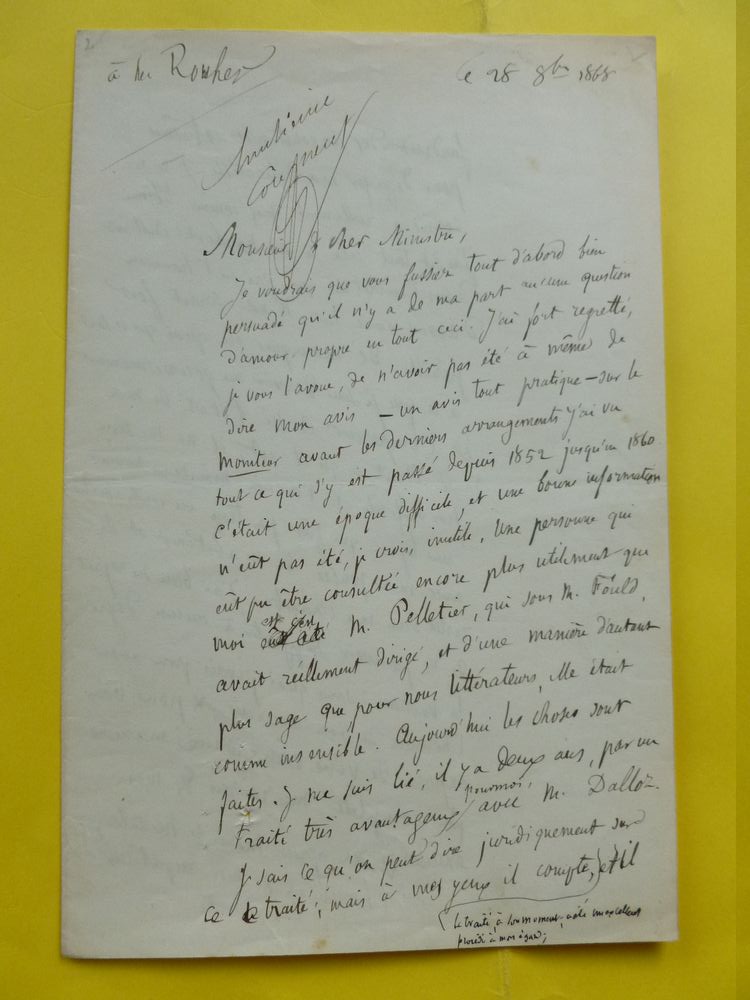 2
à M. Rouher
le 28 8bre 1868
Monsieur & cher Ministre,
Je voudrais que vous fussiez tout d'abord bien
persuadé qu'il n'y a de ma part aucune question
d'amour propre en tout ceci. J'ai fort regretté,
je vous l'avoue, de n'avoir pas été à même de
dire mon avis — un avis tout pratique — sur le
moniteur avant les derniers arrangements. J'ai vu
tout ce qui s'y est passé depuis 1852 jusqu'en 1860
c'était une époque difficile, et une bonne information
n'eût pas été, je crois, inutile. Une personne qui
eût pu être consultée encore plus utilement que
moi c'est M. Pelletier, qui sous M. Fould,
avait réellement dirigé, et d'une manière d'autant
plus sage que pour nous littérateurs, elle était
comme insensible. Aujourd'hui les choses sont
faites. Je me suis lié, il y a deux ans, par un
traité très avantageux pour moi, avec M. Dalloz.
Je sais ce qu'on peut dire juridiquement sur
ce traité; mais à mes yeux il compte, et il
le traité, à son moment, a été un excellent
procédé à mon égard;